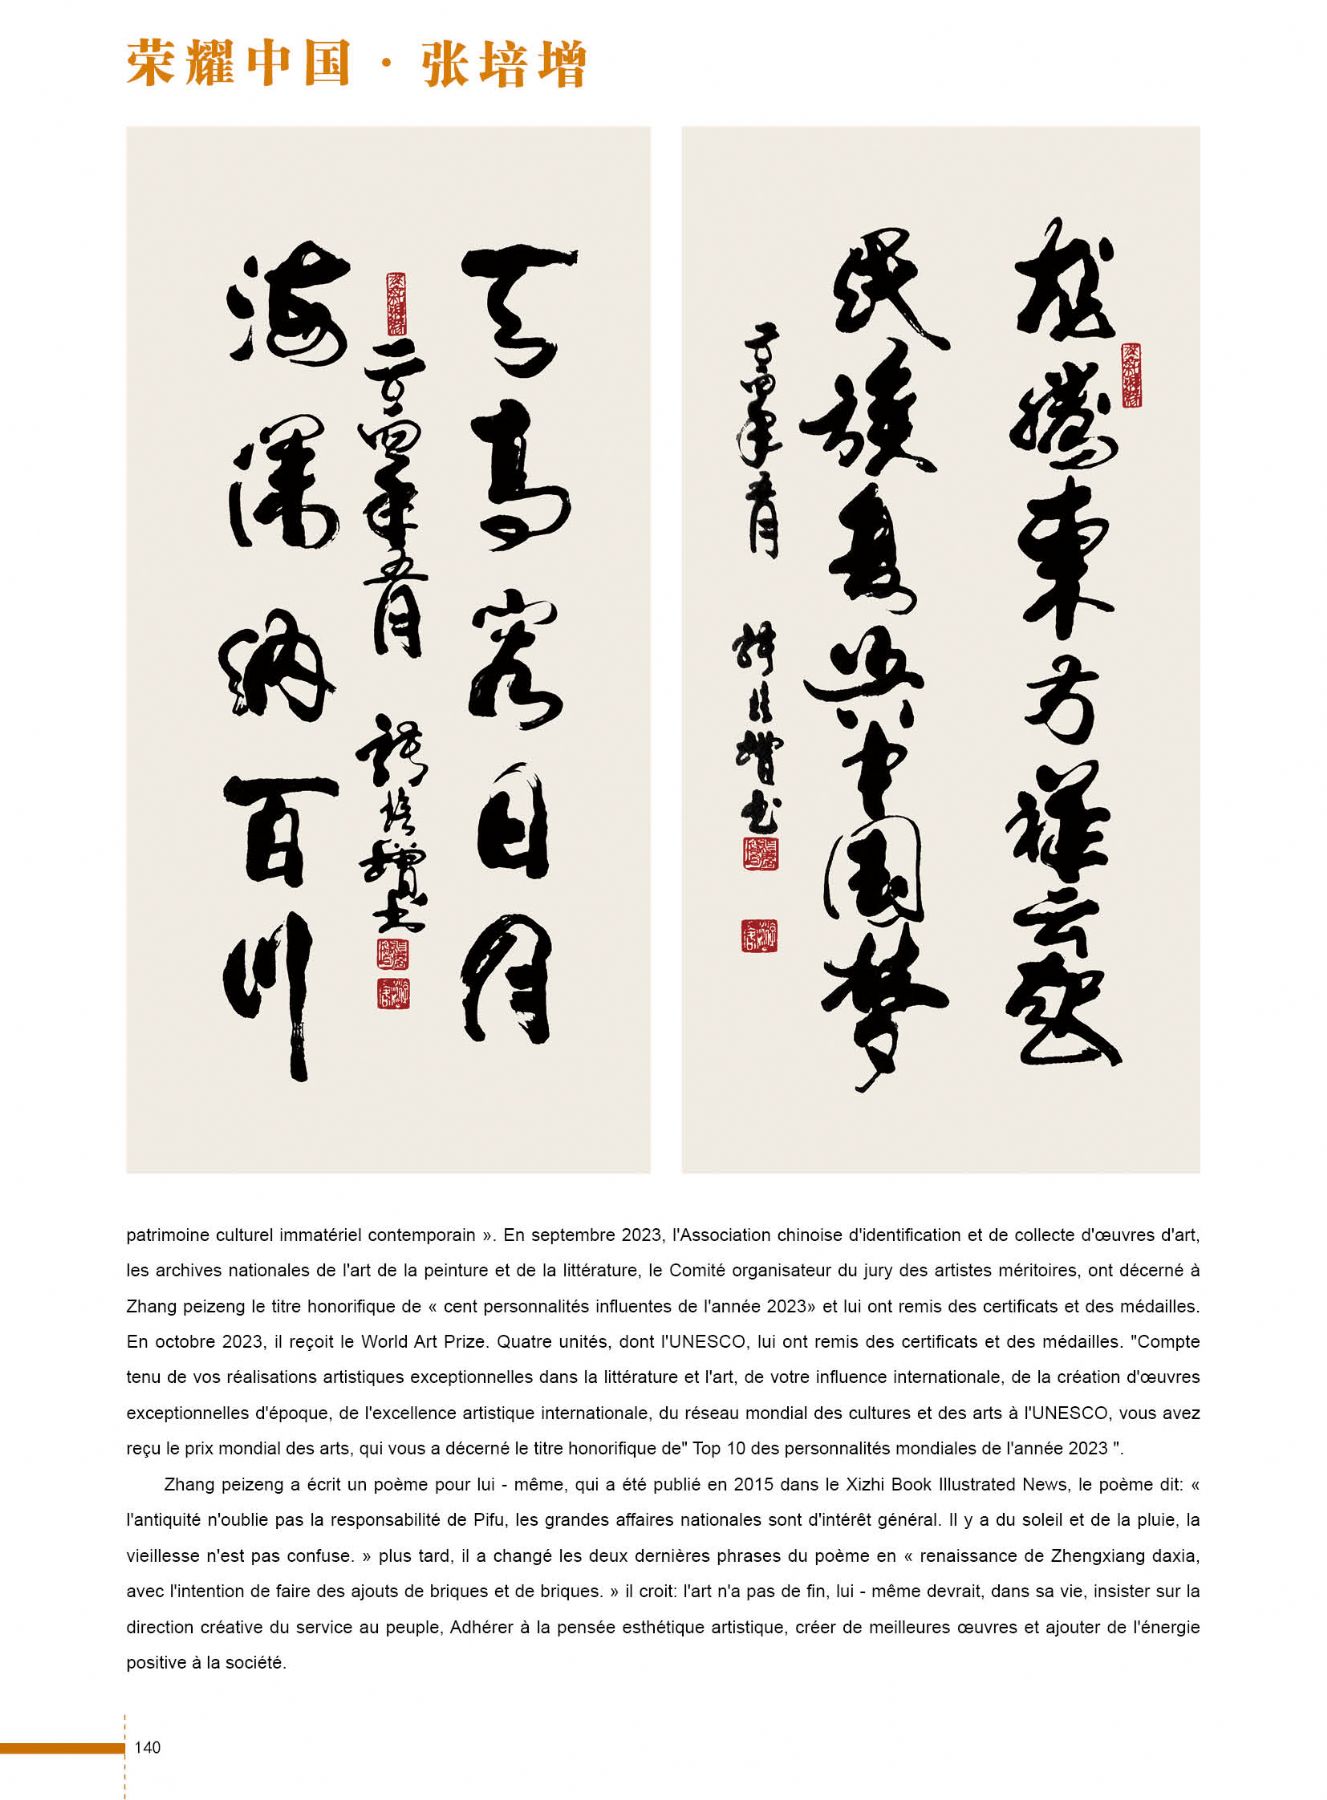 荣耀中国 · 张培增
天高容日月
海深纳百川
二〇二四年五月 张培增书
龙腾东方祥云起
民族复兴中国梦
二〇二四年五月 张培增书
patrimoine culturel immatériel contemporain ». En septembre 2023, l'Association chinoise d'identification et de collecte d'œuvres d'art,
les archives nationales de l'art de la peinture et de la littérature, le Comité organisateur du jury des artistes méritoires, ont décerné à
Zhang peizeng le titre honorifique de « cent personnalités influentes de l'année 2023» et lui ont remis des certificats et des médailles.
En octobre 2023, il reçoit le World Art Prize. Quatre unités, dont l'UNESCO, lui ont remis des certificats et des médailles. "Compte
tenu de vos réalisations artistiques exceptionnelles dans la littérature et l'art, de votre influence internationale, de la création d'œuvres
exceptionnelles d'époque, de l'excellence artistique internationale, du réseau mondial des cultures et des arts à l'UNESCO, vous avez
reçu le prix mondial des arts, qui vous a décerné le titre honorifique de" Top 10 des personnalités mondiales de l'année 2023 ".
Zhang peizeng a écrit un poème pour lui - même, qui a été publié en 2015 dans le Xizhi Book Illustrated News, le poème dit: «
l'antiquité n'oublie pas la responsabilité de Pifu, les grandes affaires nationales sont d'intérêt général. Il y a du soleil et de la pluie, la
vieillesse n'est pas confuse. » plus tard, il a changé les deux dernières phrases du poème en « renaissance de Zhengxiang daxia,
avec l'intention de faire des ajouts de briques et de briques. » il croit: l'art n'a pas de fin, lui - même devrait, dans sa vie, insister sur la
direction créative du service au peuple, Adhérer à la pensée esthétique artistique, créer de meilleures œuvres et ajouter de l'énergie
positive à la société.
140